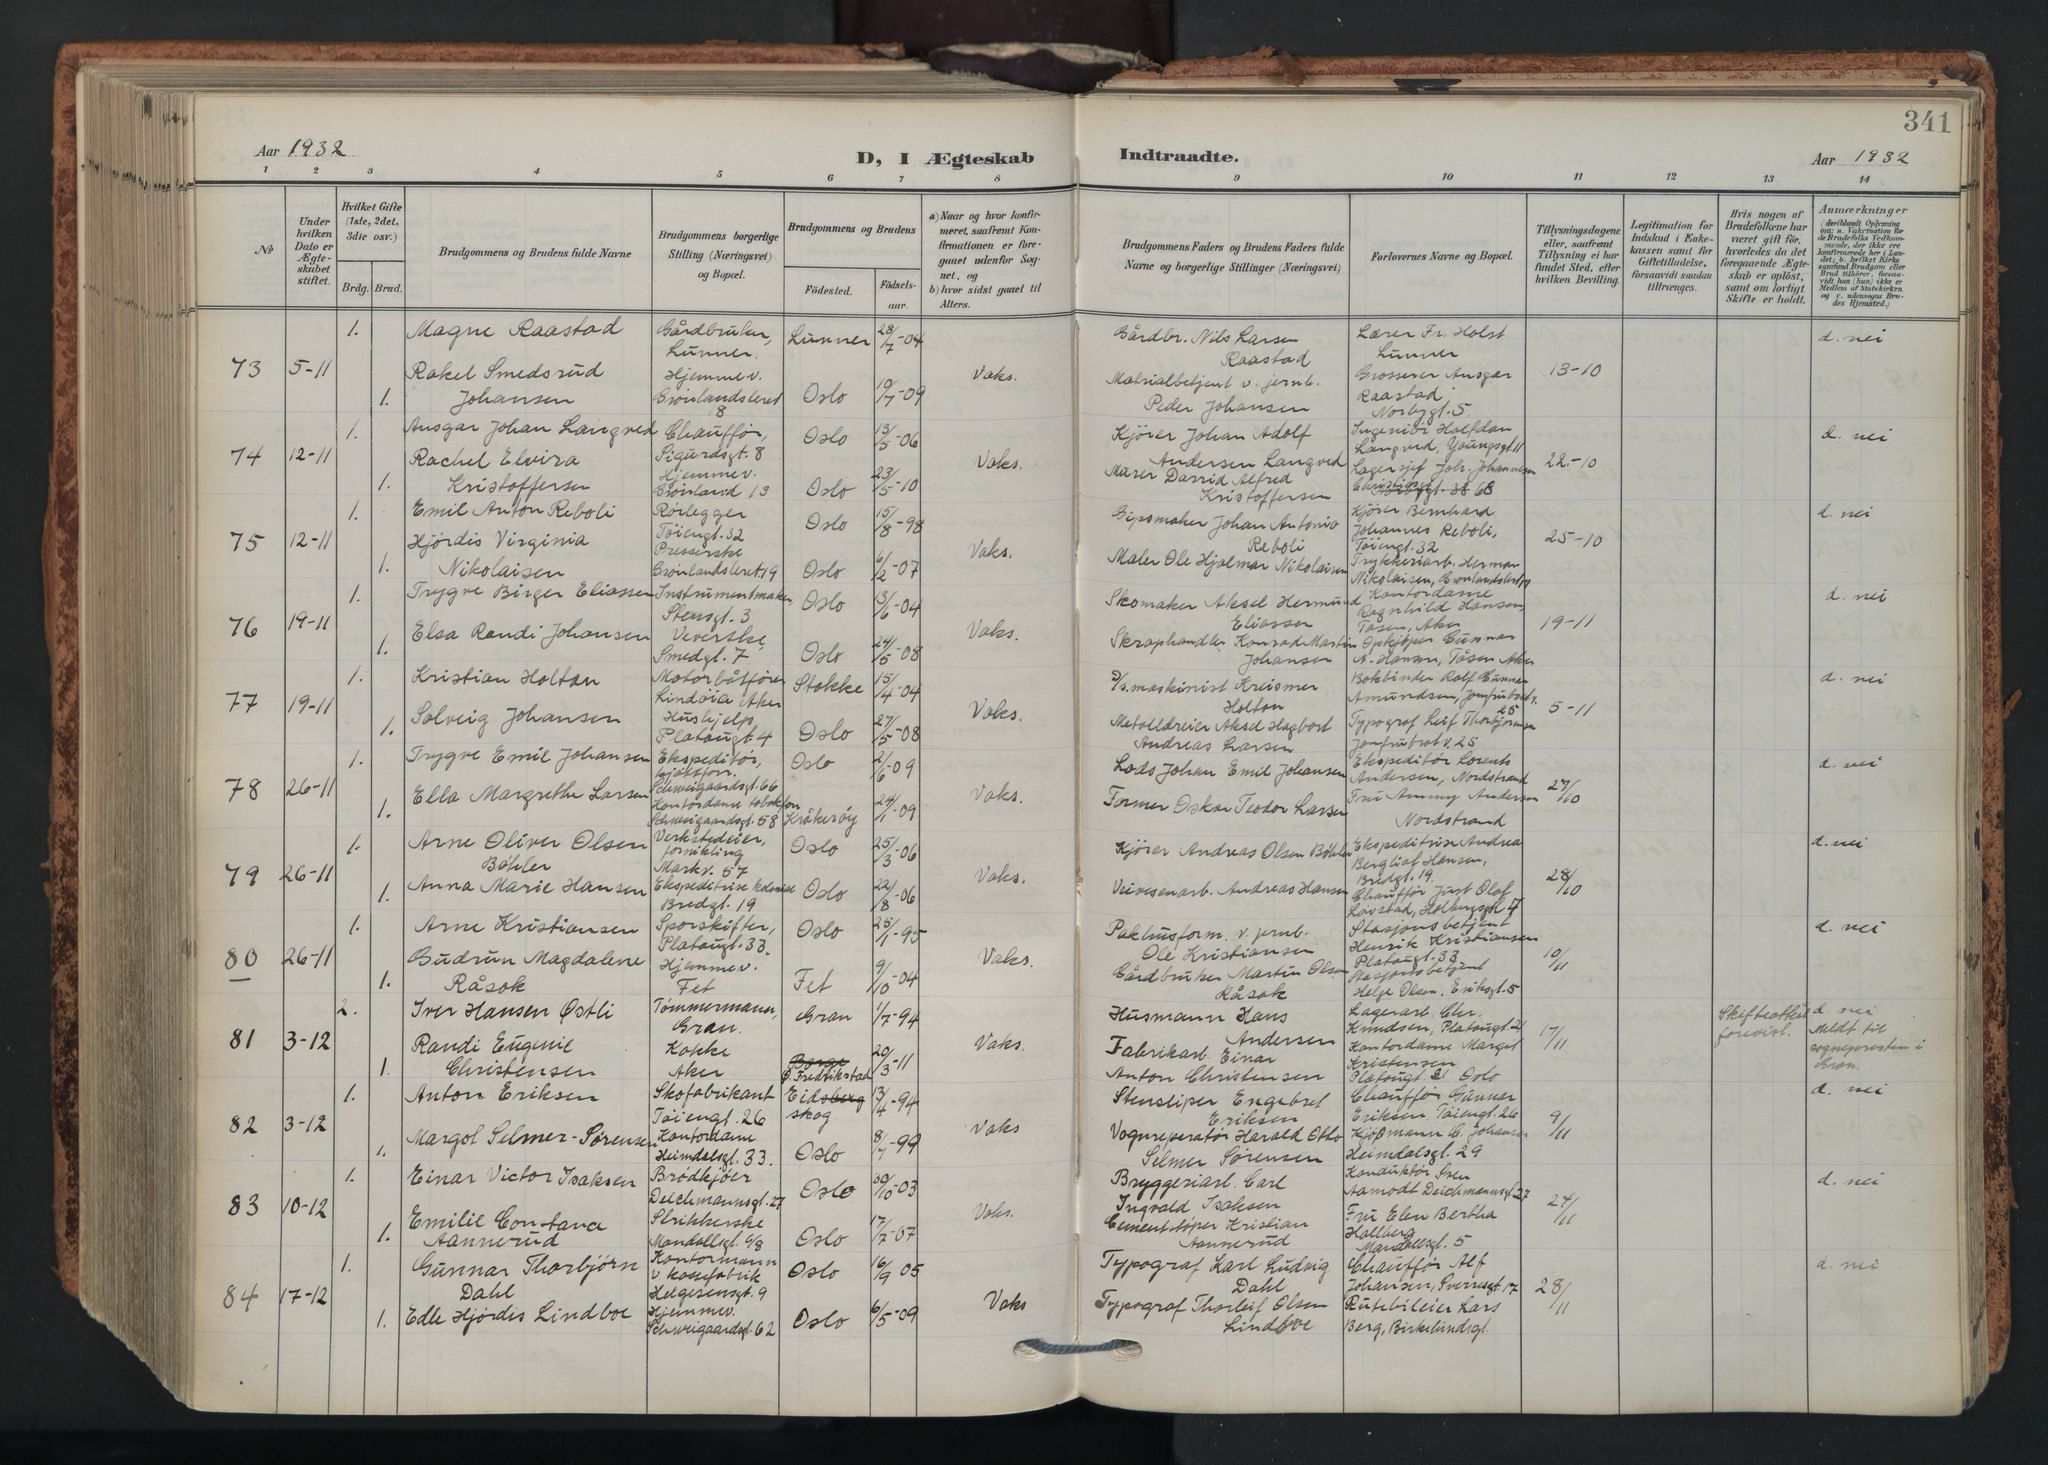 341
Aar 1932
D, I Ægteskab
Indtraadte.
Aar 1932
1 2 3 4 5 6 7 8 9 10 11 12 13 14
No
Under hvilken Dato er Ægteskabet stiftet.
Hvilket Gifte (1ste, 2det, 3die osv.)
Brdg. Brud.
Brudgommens og Brudens fulde Navne
Brudgommens borgerlige Stilling (Næringsvei) og Bopæl.
Brudgommens og Brudens
Fødested. Fødselsaar.
a) Naar og hvor konfirmeret, saafremt Konfirmationen er foregaaet udenfor Sognet, og
b) hvor sidst gaaet til Alters.
Brudgommens Faders og Brudens Faders fulde Navne og borgerlige Stillinger (Næringsvei)
Forlovernes Navne og Bopæl.
Tillysningsdagene eller, saafremt Tillysning ei har fundet Sted, efter hvilken Bevilling.
Legitimation for Indskud i Enkekassen samt for Giftetilladelse, forsaavidt saadan tiltrænges.
Hvis nogen af Brudefolkene har været gift før, hvorledes da det foregaaende Ægteskab er opløst, samt om lovligt Skifte er holdt.
Anmærkninger
73 5-11
1. Magne Raastad
Gårdbruker, Lunner.
Lunner 28/7-04
1. Rakel Smedsrud Johansen
Hjemmev. Grønlandsleret 8
Oslo 19/7-09
Vaks.
Gårdbr. Nils Larsen Raastad
Matrialbetjent v. jernb. Peder Johansen
Lærer Fr. Holst Lunner
Grosserer Ansgar Raastad Norbygt. 5.
13-10
d. nei
74 12-11
1. Ansgar Johan Langved
Chauffør, Sigurdsgt. 8
Oslo 13/5-06
1. Rachel Elvira Kristoffersen
Hjemmev. Grønland 13
Oslo 23/5-10
Vaks.
Kjører Johan Adolf Andersen Langved
Murer David Alfred Kristoffersen
Ingeniør Halfdan Langved, Youngsgt. 11
Lagersjef Joh. Johannesen
22-10
d. nei
75 12-11
1. Emil Anton Reboli
Rørlegger Tøiengt. 32
Oslo 15/8-98
1. Hjørdis Virginia Nikolaisen
Presserske Grønlandsleret. 19
Oslo 6/2-07
Vaks.
Gipsmaker Johan Antonio Reboli
Maler Ole Hjalmar Nikolaisen
Kjører Bernhard Johannes Reboli, Tøiengt. 32
Trykkeriarb. Herman Nikolaisen, Grønlandsleret 19
25-10
d. nei
76 19-11
1. Trygve Birger Eliassen
Instrumentmaker, Stensgt. 3
Oslo 13/6-04
1. Elsa Randi Johansen
Veverske, Smedgt. 7
Oslo 24/5-08
Vaks.
Skomaker Aksel Hermund Eliassen
Skraphandler Konrad Martin Johansen
Kontordame Ragnhild Hansen Tåsen, Aker
Opkjøper Gunnar A. Hansen, Tåsen Aker
19-11
d. nei
77 19-11
1. Kristian Holtan
Motorbåtfører Lindøia Aker
Stokke 15/4-04
1. Solveig Johansen
Hushjelp, Platougt. 4
Oslo 27/5-08
Vaks.
D/s. maskinist Kreismer Holtan
Aksel Hagbart Andreas Larsen
Bokbinder Rolf Gunnar Amundsen, Jomfrubratv. 25
Typograf Leif Thorbjørnsen Jomfrubratv. 25
5-11
d. nei
78 26-11
1. Trygve Emil Johansen
Ekspeditør, Schweigaardsgt. 66
Oslo 2/6-09
1. Ella Margrethe Larsen
Kontordame Schweigaardsgt. 58
Kråkerøy 24/1-09
Vaks.
Lods Johan Emil Johansen
Former Oskar Teodor Larsen
Ekspeditør Lorents Andersen, Nordstrand
Fru Ammy Andersen Nordstrand
27/10
d. nei
79 26-11
1. Arne Oliver Olsen Bøhler
Verkstedeier, fornikling Markv. 57
Oslo 25/3-06
1. Anna Marie Hansen
Ekspeditrise kolonial Bredgt. 19
Oslo 22/8-06
Vaks.
Kjører Andreas Olsen Bøhler
Veivesenarb. Andreas Hansen
Ekspeditrise Andrea Bergliot Hansen, Bredgt. 19.
Chauffør Just Olaf Løvstad, Holbergsgt 7
28/10
d. nei
80 26-11
1. Arne Kristiansen
Sporskifter, Platougt. 33.
Oslo 25/1-95
1. Gudrun Magdalene Råsok
Hjemmev. Fet
Fet 9/10-04
Vaks.
Pakhusform. v. jernb. Ole Kristiansen
Gårdbruker Martin Olsen Råsok
Stasjonsbetjent Henrik Kristiansen Platougt. 33
Stasjonsbetjent Helge Olsen, Eriksgt. 5
10/11
d. nei
81 3-12
2. Iver Hansen Østli
Tømmermann, Gran.
Gran 1/7-94
1. Randi Eugenie Christensen
Kokke Aker
Borge p. Fredrikstad 20/3-11
Vaks.
Husmann Hans Andersen
Fabrikarb. Einar Anton Christensen
Lagerarb. Chr. Knudsen, Platougt. 21
Kontordame Margit Kristensen Platougt. 21 Oslo
17/11
Skifteattest forevist.
d. nei
Meldt til sognepresten i Gran.
82 3-12
1. Anton Eriksen
Skofabrikant Tøiengt. 26
Eidsberg skog 13/4-94
1. Margot Selmer-Sørensen
Kontordame Heimdalsgt. 33.
Oslo 8/7-99
Vaks
Stensliper Engebret Eriksen
Vognreperatør Harald Otto Selmer Sørensen
Chauffør Gunnar Eriksen Tøiengt. 26
Kjøpmann C. Johansen Heimdalsgt. 29
9/11
d. nei
83 10-12
1. Einar Victor Isaksen
Brødkjører Deichmannsgt. 27
Oslo 30/10-03
1. Emilie Constance Aannerud
Strikkerske Mandallsgt. 6/8
Oslo 17/7-07
Vaks.
Bryggeriarb. Carl Ingvald Isaksen
Cementstøper Kristian Aannerud
Konduktør Sven Aamodt Deichmannsgt. 27
Fru Elen Bertha Hallberg Mandallsgt. 5
24/11
d. nei
84 17-12
1. Gunnar Thorbjørn Dahl
Kontormann v. Helgesensgt. 9
Oslo 16/9 05
1. Edle Hjørdis Lindboe
Hjemmev. Schweigaardsgt. 62
Oslo 6/5-09
Vaks
Typograf Karl Ludvig Dahl
Typograf Thorleif Olsen Lindboe
Chauffør Alf Johansen, Sverresgt. 17
Rutebileier Lars Berg, Birkelundsgt.
28/11
d. nei